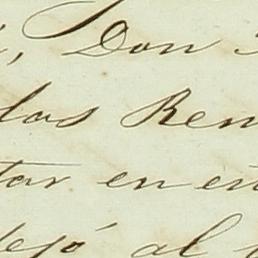 , Don
los Rem
tar en en
dejó al